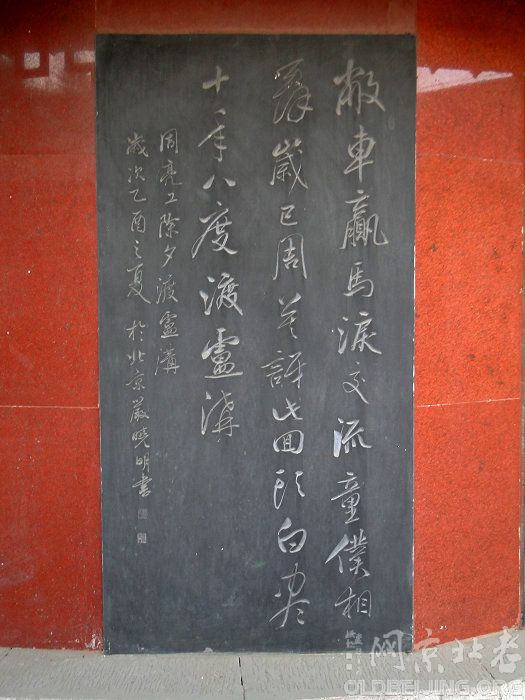 敝車羸馬淚交流童僕相
看歲已周莫訝此回頭白盡
十年八度渡盧溝
周亮工除夕渡盧溝
歲次乙酉之夏於北京嚴曉明書
老北京网
OLDBEIJING.ORG